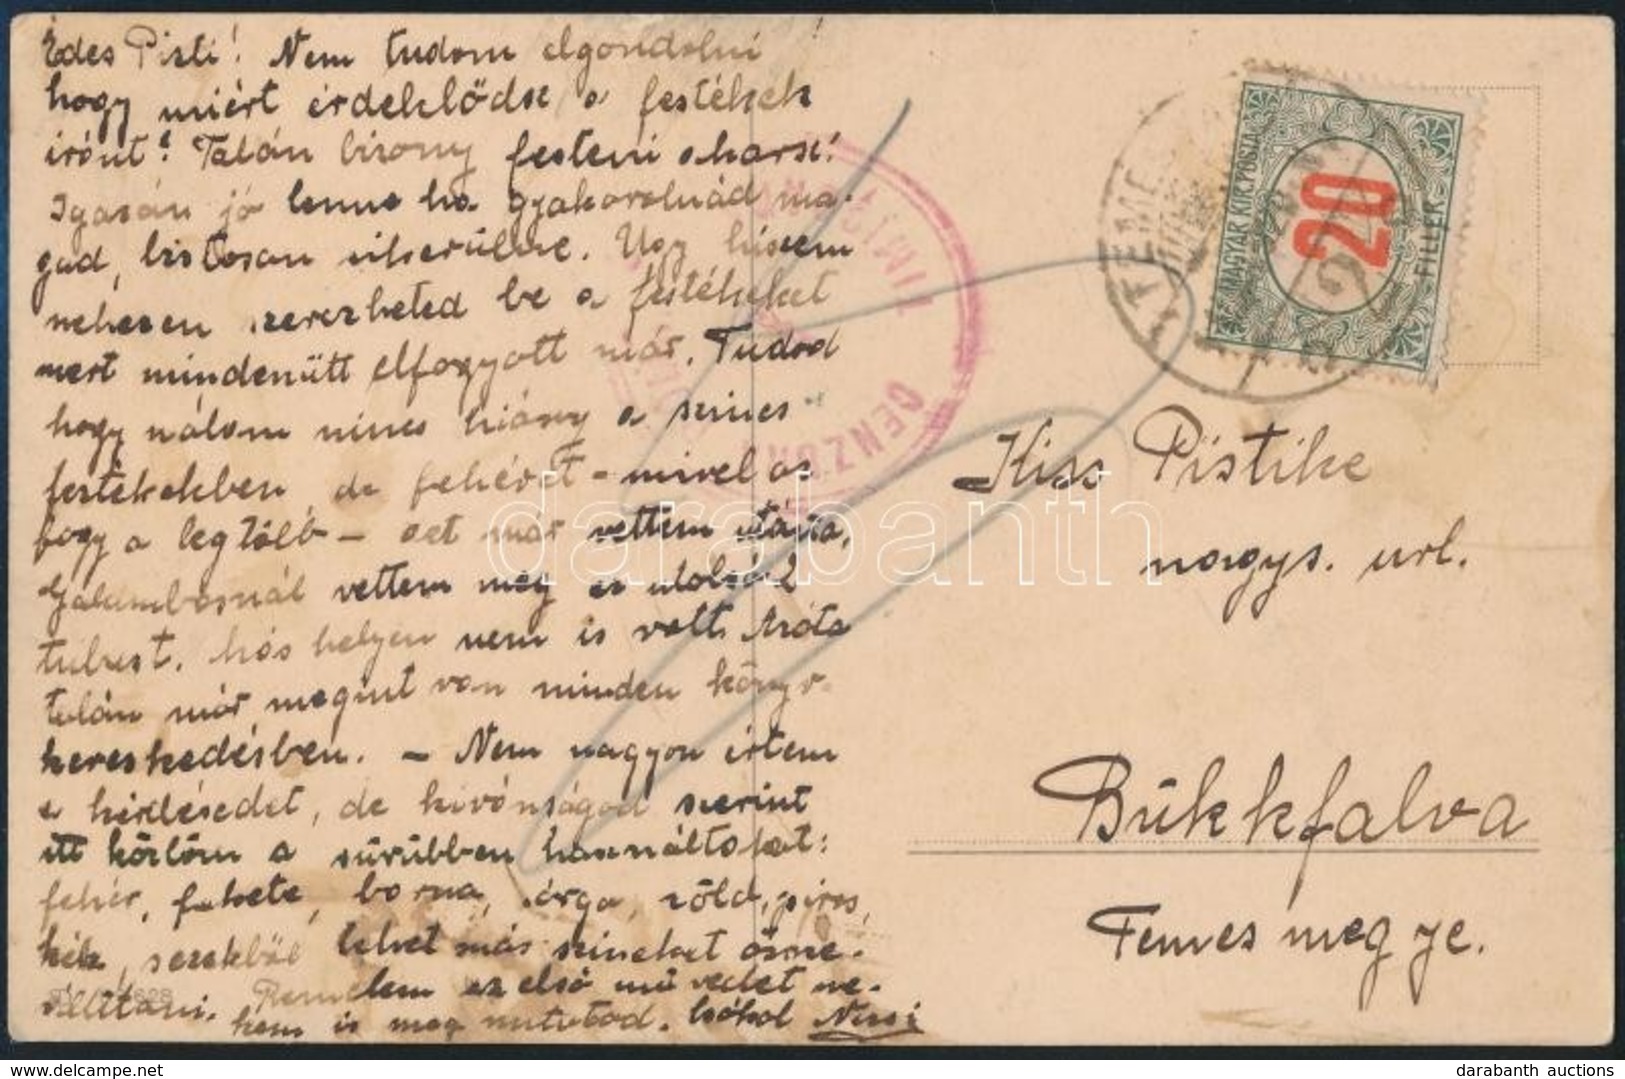 Édes Pisti! Nem tudom elgondolni
hogy miért érdeklődsz a festékek
iránt? Talán bizony festeni akarsz?
Igazán jó lenne ha gyakorolnád ma-
gad, biztosan sikerülne. Úgy hiszem
nehezen szerezheted be a festékeket
mert mindenütt elfogyott már. Tudod
hogy nálam nincs hiány a szines
festékekben, de fehéret – mivel az
fogy a legtöbb – azt már vettem utána,
Galambosnál vettem meg az utolsó 2
tubust. Más helyen nem is volt. Azóta
talán már megint van minden könyv-
kereskedésben. – Nem nagyon értem
a kérdésedet, de kivánságod szerint
itt közlöm a sürübben használtokat:
fehér, fekete, barna, sárga, zöld, piros,
kék, ezekből lehet más szineket össze-
állitani. Remélem az első müvedet ne-
kem is meg mutatod. Csókol
TEME
MAGYAR KIR. POSTA
20
FILLÉR
TIMIȘ
CENZURAT
Kiss Pistike
nagys. url.
Bükkfalva
Temes megye.
darabanth
darabanth auctions
delcampe.net